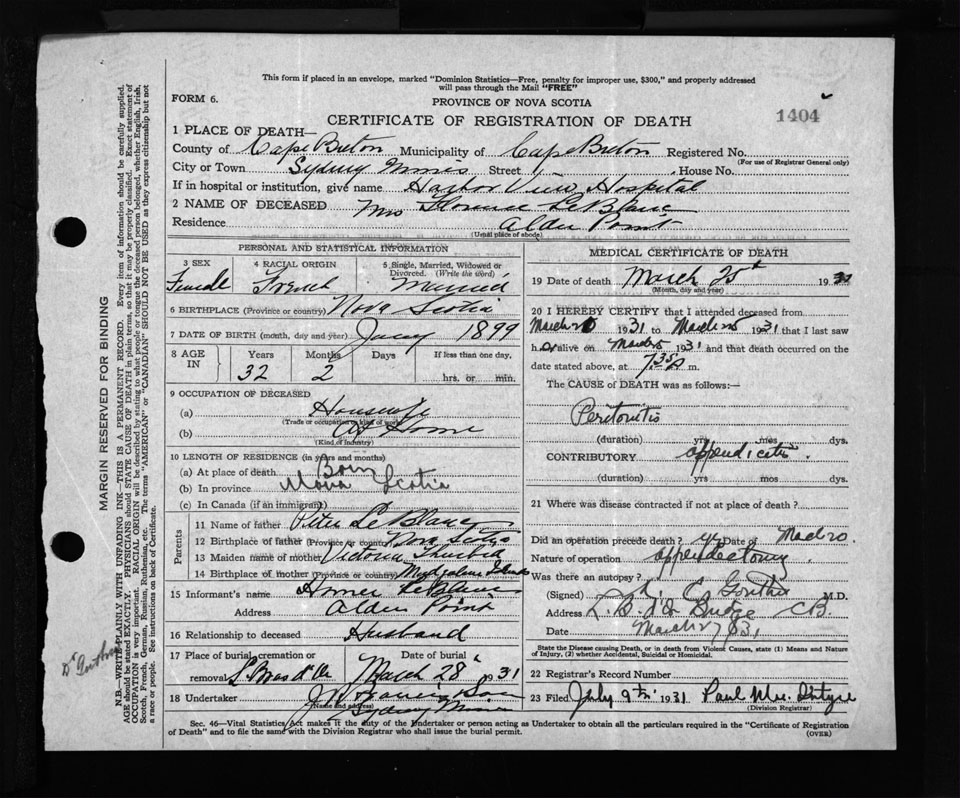 This form if placed in an envelope, marked "Dominion Statistics—Free, penalty for improper use, $300," and properly addressed
will pass through the Mail "FREE"
FORM 6.
PROVINCE OF NOVA SCOTIA
1404
CERTIFICATE OF REGISTRATION OF DEATH
1 PLACE OF DEATH—
County of Cape Breton Municipality of Cape Breton Registered No.
(For use of Registrar General only)
City or Town Sydney Mines Street House No.
If in hospital or institution, give name Harbor View Hospital
2 NAME OF DECEASED Mrs Florence LeBlanc
Residence Alder Point
(Usual place of abode)
PERSONAL AND STATISTICAL INFORMATION
3 SEX
Female
4 RACIAL ORIGIN
French
5 Single, Married, Widowed or
Divorced. (Write the word)
Married
6 BIRTHPLACE (Province or country) Nova Scotia
7 DATE OF BIRTH (month, day and year) 1899
8 AGE
IN
Years
32
Months
2
Days
If less than one day.
hrs. or min.
9 OCCUPATION OF DECEASED
(a) Housewife
(Trade or occupation or kind of work)
(b) At Home
(Kind of Industry)
10 LENGTH OF RESIDENCE (in years and months)
(a) At place of death
Born
(b) In province Nova Scotia
(c) In Canada (if an immigrant)
Parents
11 Name of father Peter LeBlanc
12 Birthplace of father (Province or country) Nova Scotia
13 Maiden name of mother Victoria
14 Birthplace of mother (Province or country) Magdalene Islands
15 Informant's name Homer LeBlanc
Address Alder Point
16 Relationship to deceased Husband
17 Place of burial, cremation or
removal L. Bras d'Or
Date of burial
March 28 1931
18 Undertaker
(Name and address)
Sydney Mines
MEDICAL CERTIFICATE OF DEATH
19 Date of death March 25th 1931
(Month, day and year)
20 I HEREBY CERTIFY that I attended deceased from
March 1931 to March 25 1931 that I last saw
her alive on March 25 1931 and that death occurred on the
date stated above, at 7.35 m.
The CAUSE of DEATH was as follows:—
Peritonitis
(duration) yrs mos dys.
CONTRIBUTORY appendicitis
(duration) yrs mos dys.
21 Where was disease contracted if not at place of death?
Did an operation precede death? yes Date of March 20.
Nature of operation appendectomy
Was there an autopsy?
(Signed) M.D.
Address C.B.
Date March 27/31
State the Disease causing Death, or in death from Violent Causes, state (1) Means and
Nature of Injury, (2) whether Accidental, Suicidal or Homicidal.
22 Registrar's Record Number
23 Filed July 9th 1931 Paul McIntyre
(Division Registrar)
Sec. 46—Vital Statistics Act makes it the duty of the Undertaker or person acting as Undertaker to obtain all the particulars required in the "Certificate of Registration
of Death" and to file the same with the Division Registrar who shall issue the burial permit.
(OVER)
MARGIN RESERVED FOR BINDING
N.B.—WRITE PLAINLY WITH UNFADING INK—THIS IS A PERMANENT RECORD. Every item of information should be carefully supplied.
AGE should be stated EXACTLY. PHYSICIANS should STATE CAUSE OF DEATH in plain terms, so that it may be properly classified. Exact statement of
OCCUPATION is very important. RACIAL ORIGIN will be described by stating to what people or tongue the deceased person belonged, whether English, Irish,
Scotch, French, German, Russian, Ruthenian, etc. The terms "AMERICAN" or "CANADIAN" SHOULD NOT BE USED as they express citizenship but not
a race or people. See instructions on back of Certificate.